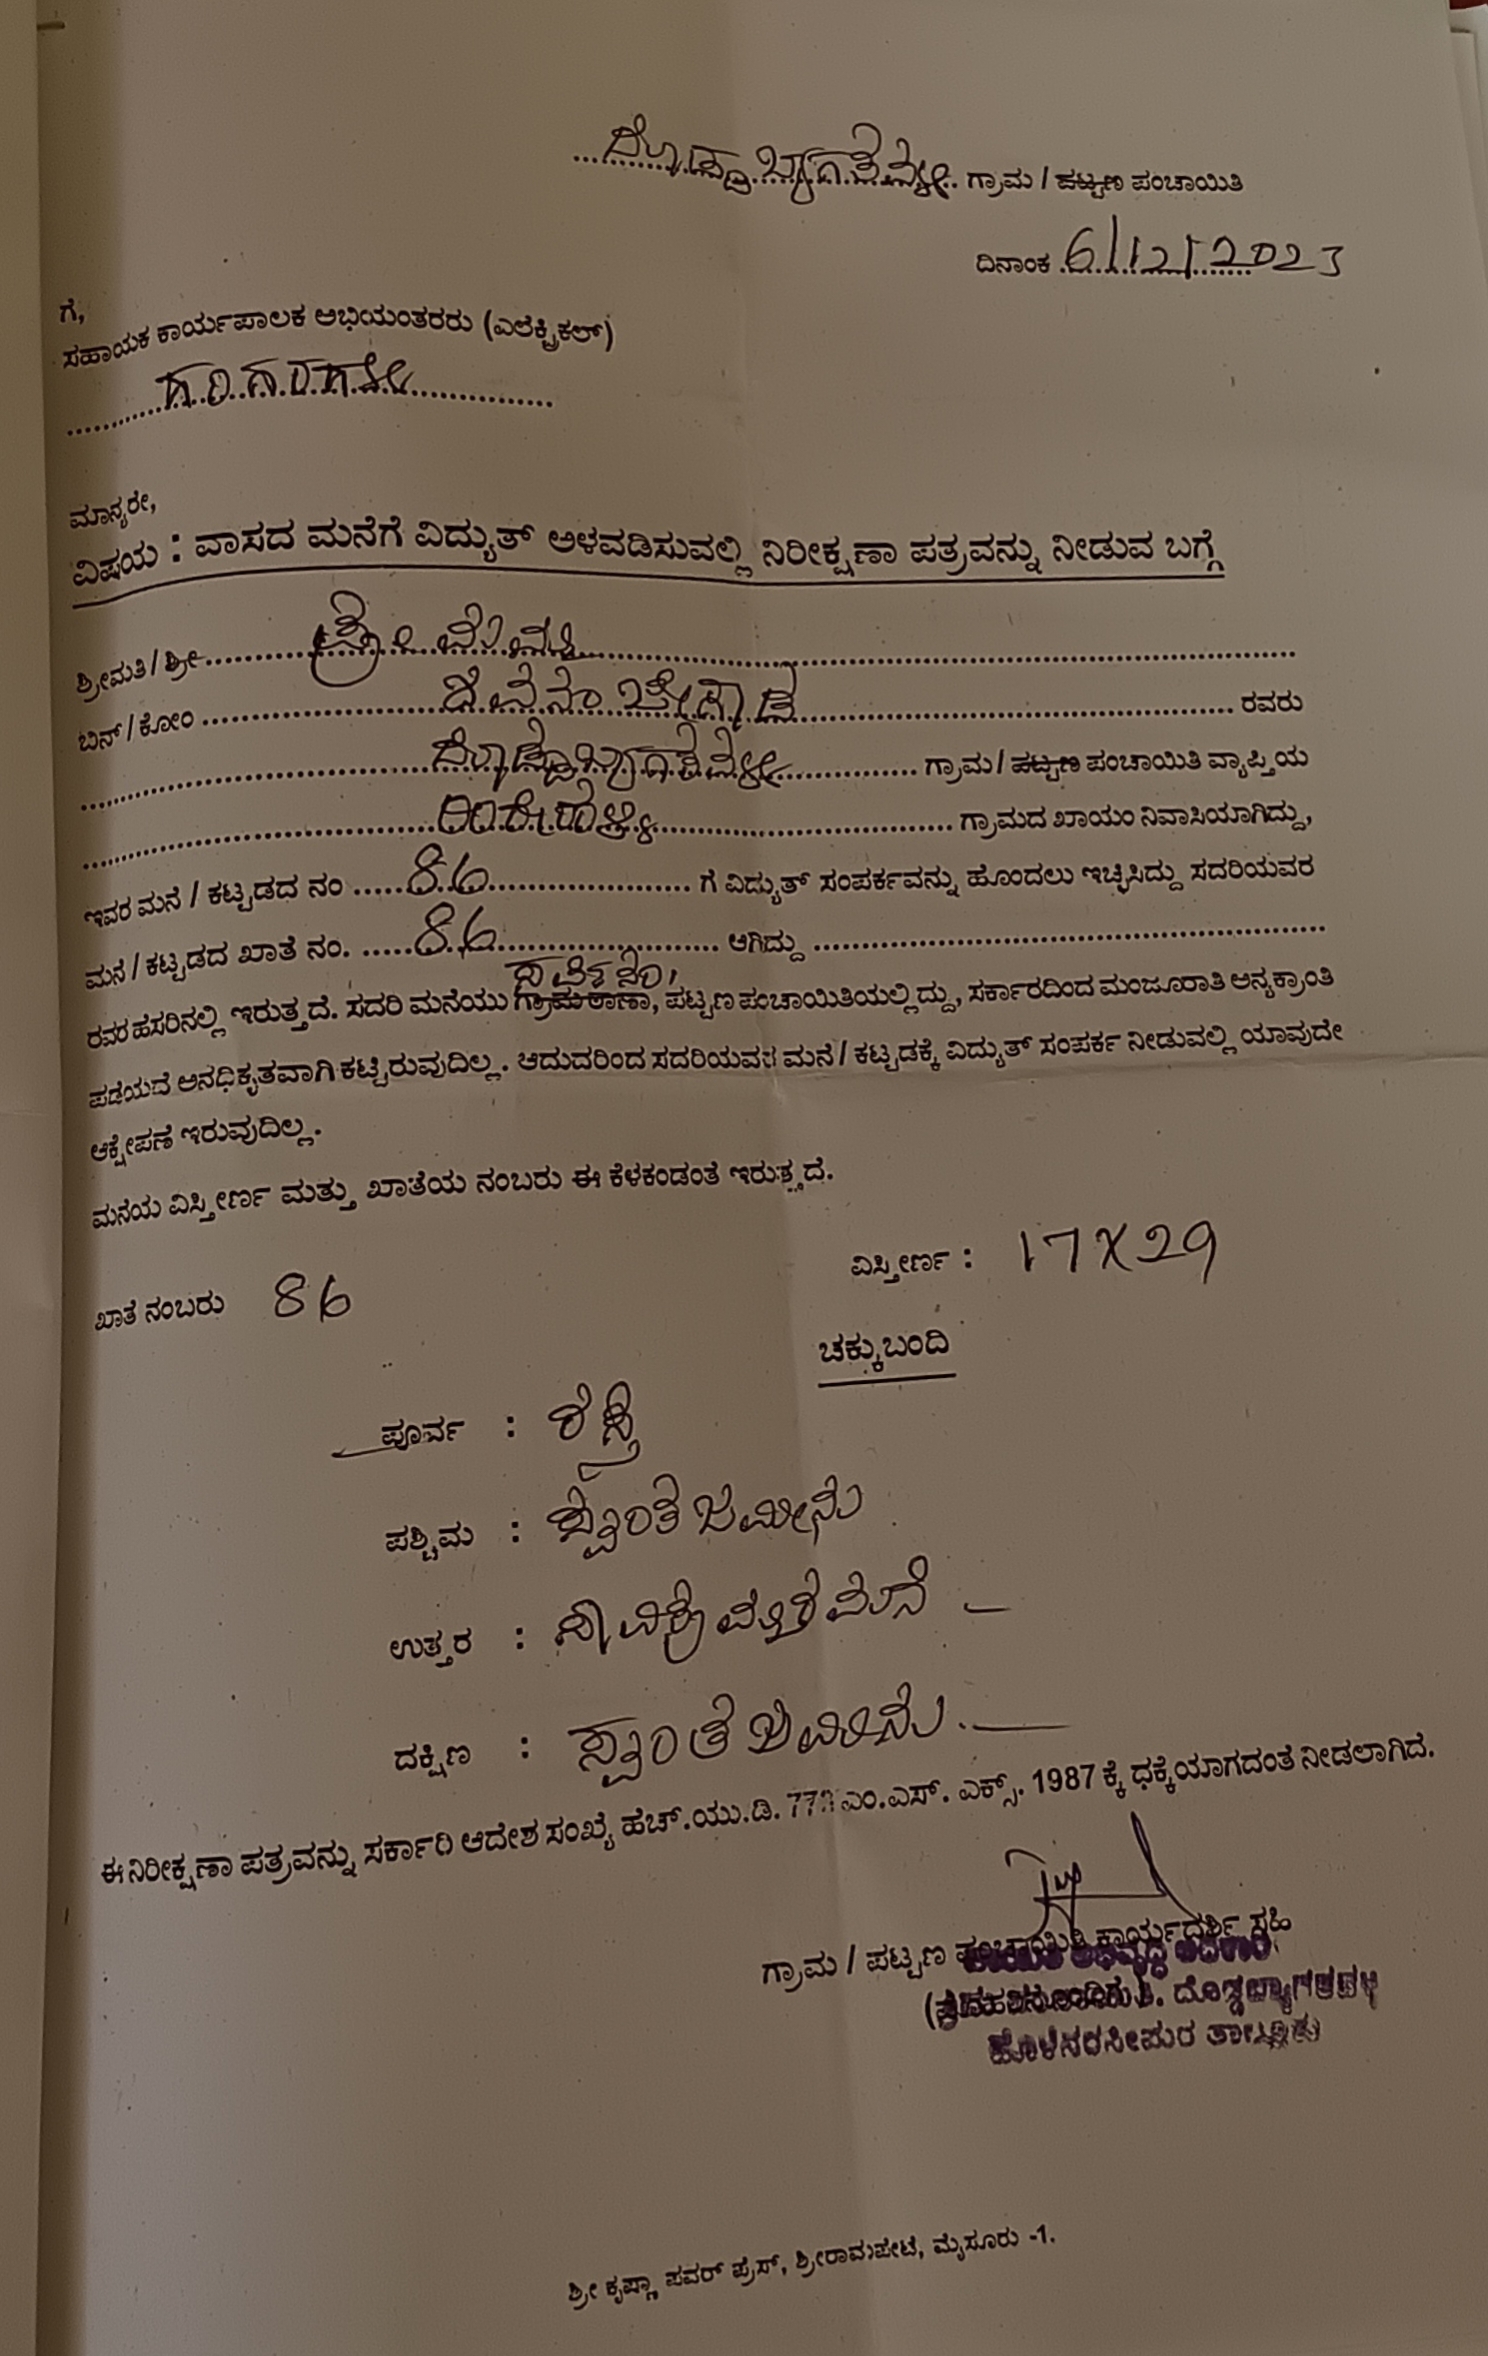 ದೊಡ್ಡಬ್ಯಾಗತವಳ್ಳಿ ಗ್ರಾಮ / ಪಟ್ಟಣ ಪಂಚಾಯಿತಿ
ದಿನಾಂಕ 6/12/2023
ಗೆ,
ಸಹಾಯಕ ಕಾರ್ಯಪಾಲಕ ಅಭಿಯಂತರರು (ಎಲೆಕ್ಟ್ರಿಕಲ್)
ಮಾನ್ಯರೇ,
ವಿಷಯ : ವಾಸದ ಮನೆಗೆ ವಿದ್ಯುತ್ ಅಳವಡಿಸುವಲ್ಲಿ ನಿರೀಕ್ಷಣಾ ಪತ್ರವನ್ನು ನೀಡುವ ಬಗ್ಗೆ
ಶ್ರೀಮತಿ / ಶ್ರೀ
ಬಿನ್ / ಕೋಂ ರವರು
ದೊಡ್ಡಬ್ಯಾಗತವಳ್ಳಿ ಗ್ರಾಮ / ಪಟ್ಟಣ ಪಂಚಾಯಿತಿ ವ್ಯಾಪ್ತಿಯ
ಗ್ರಾಮದ ಖಾಯಂ ನಿವಾಸಿಯಾಗಿದ್ದು,
ಇವರ ಮನೆ / ಕಟ್ಟಡದ ನಂ 86 ಗೆ ವಿದ್ಯುತ್ ಸಂಪರ್ಕವನ್ನು ಹೊಂದಲು ಇಚ್ಛಿಸಿದ್ದು ಸದರಿಯವರ
ಮನೆ / ಕಟ್ಟಡದ ಖಾತೆ ನಂ. 86 ಆಗಿದ್ದು
ರವರ ಹೆಸರಿನಲ್ಲಿ ಇರುತ್ತದೆ. ಸದರಿ ಮನೆಯು ಗ್ರಾಮಠಾಣಾ, ಪಟ್ಟಣ ಪಂಚಾಯಿತಿಯಲ್ಲಿದ್ದು, ಸರ್ಕಾರದಿಂದ ಮಂಜೂರಾತಿ ಅನ್ಯಕ್ರಾಂತಿ
ಪಡೆಯದೆ ಅನಧಿಕೃತವಾಗಿ ಕಟ್ಟಿರುವುದಿಲ್ಲ. ಆದುದರಿಂದ ಸದರಿಯವರ ಮನೆ / ಕಟ್ಟಡಕ್ಕೆ ವಿದ್ಯುತ್ ಸಂಪರ್ಕ ನೀಡುವಲ್ಲಿ ಯಾವುದೇ
ಆಕ್ಷೇಪಣೆ ಇರುವುದಿಲ್ಲ.
ಮನೆಯ ವಿಸ್ತೀರ್ಣ ಮತ್ತು ಖಾತೆಯ ನಂಬರು ಈ ಕೆಳಕಂಡಂತೆ ಇರುತ್ತದೆ.
ಖಾತೆ ನಂಬರು 86 ವಿಸ್ತೀರ್ಣ : 17X29
ಚಕ್ಕುಬಂದಿ
ಪೂರ್ವ : ರಸ್ತೆ
ಪಶ್ಚಿಮ : ಸ್ವಂತ ಜಮೀನು
ಉತ್ತರ : ಮನೆ
ದಕ್ಷಿಣ : ಸ್ವಂತ ಜಮೀನು
ಈ ನಿರೀಕ್ಷಣಾ ಪತ್ರವನ್ನು ಸರ್ಕಾರಿ ಆದೇಶ ಸಂಖ್ಯೆ ಹೆಚ್.ಯು.ಡಿ. ಎಂ.ಎಸ್. ಎಕ್ಸ್. 1987 ಕ್ಕೆ ಧಕ್ಕೆಯಾಗದಂತೆ ನೀಡಲಾಗಿದೆ.
ಗ್ರಾಮ / ಪಟ್ಟಣ ಪಂಚಾಯಿತಿ ಕಾರ್ಯದರ್ಶಿ ಸಹಿ
ಹೊಳೆನರಸೀಪುರ ತಾಲ್ಲೂಕು
ಶ್ರೀ ಕೃಷ್ಣಾ ಪವರ್ ಪ್ರೆಸ್, ಶ್ರೀರಾಮಪೇಟೆ, ಮೈಸೂರು -1.